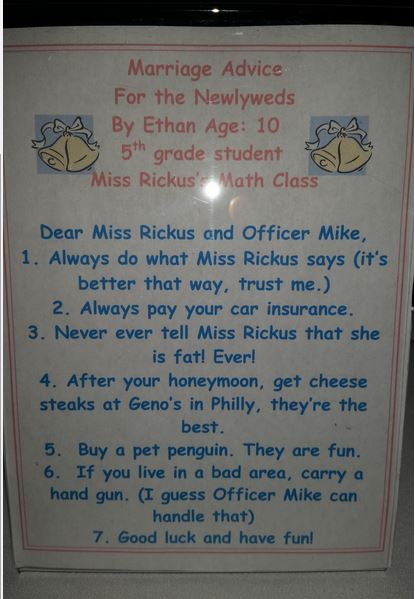 Marriage Advice
For the Newlyweds
By Ethan Age: 10
5th grade student
Miss Rickus's Math Class
Dear Miss Rickus and Officer Mike,
1. Always do what Miss Rickus says (it's
better that way, trust me.)
2. Always pay your car insurance.
3. Never ever tell Miss Rickus that she
is fat! Ever!
4. After your honeymoon, get cheese
steaks at Geno's in Philly, they're the
best.
5. Buy a pet penguin. They are fun.
6. If you live in a bad area, carry a
hand gun. (I guess Officer Mike can
handle that)
7. Good luck and have fun!